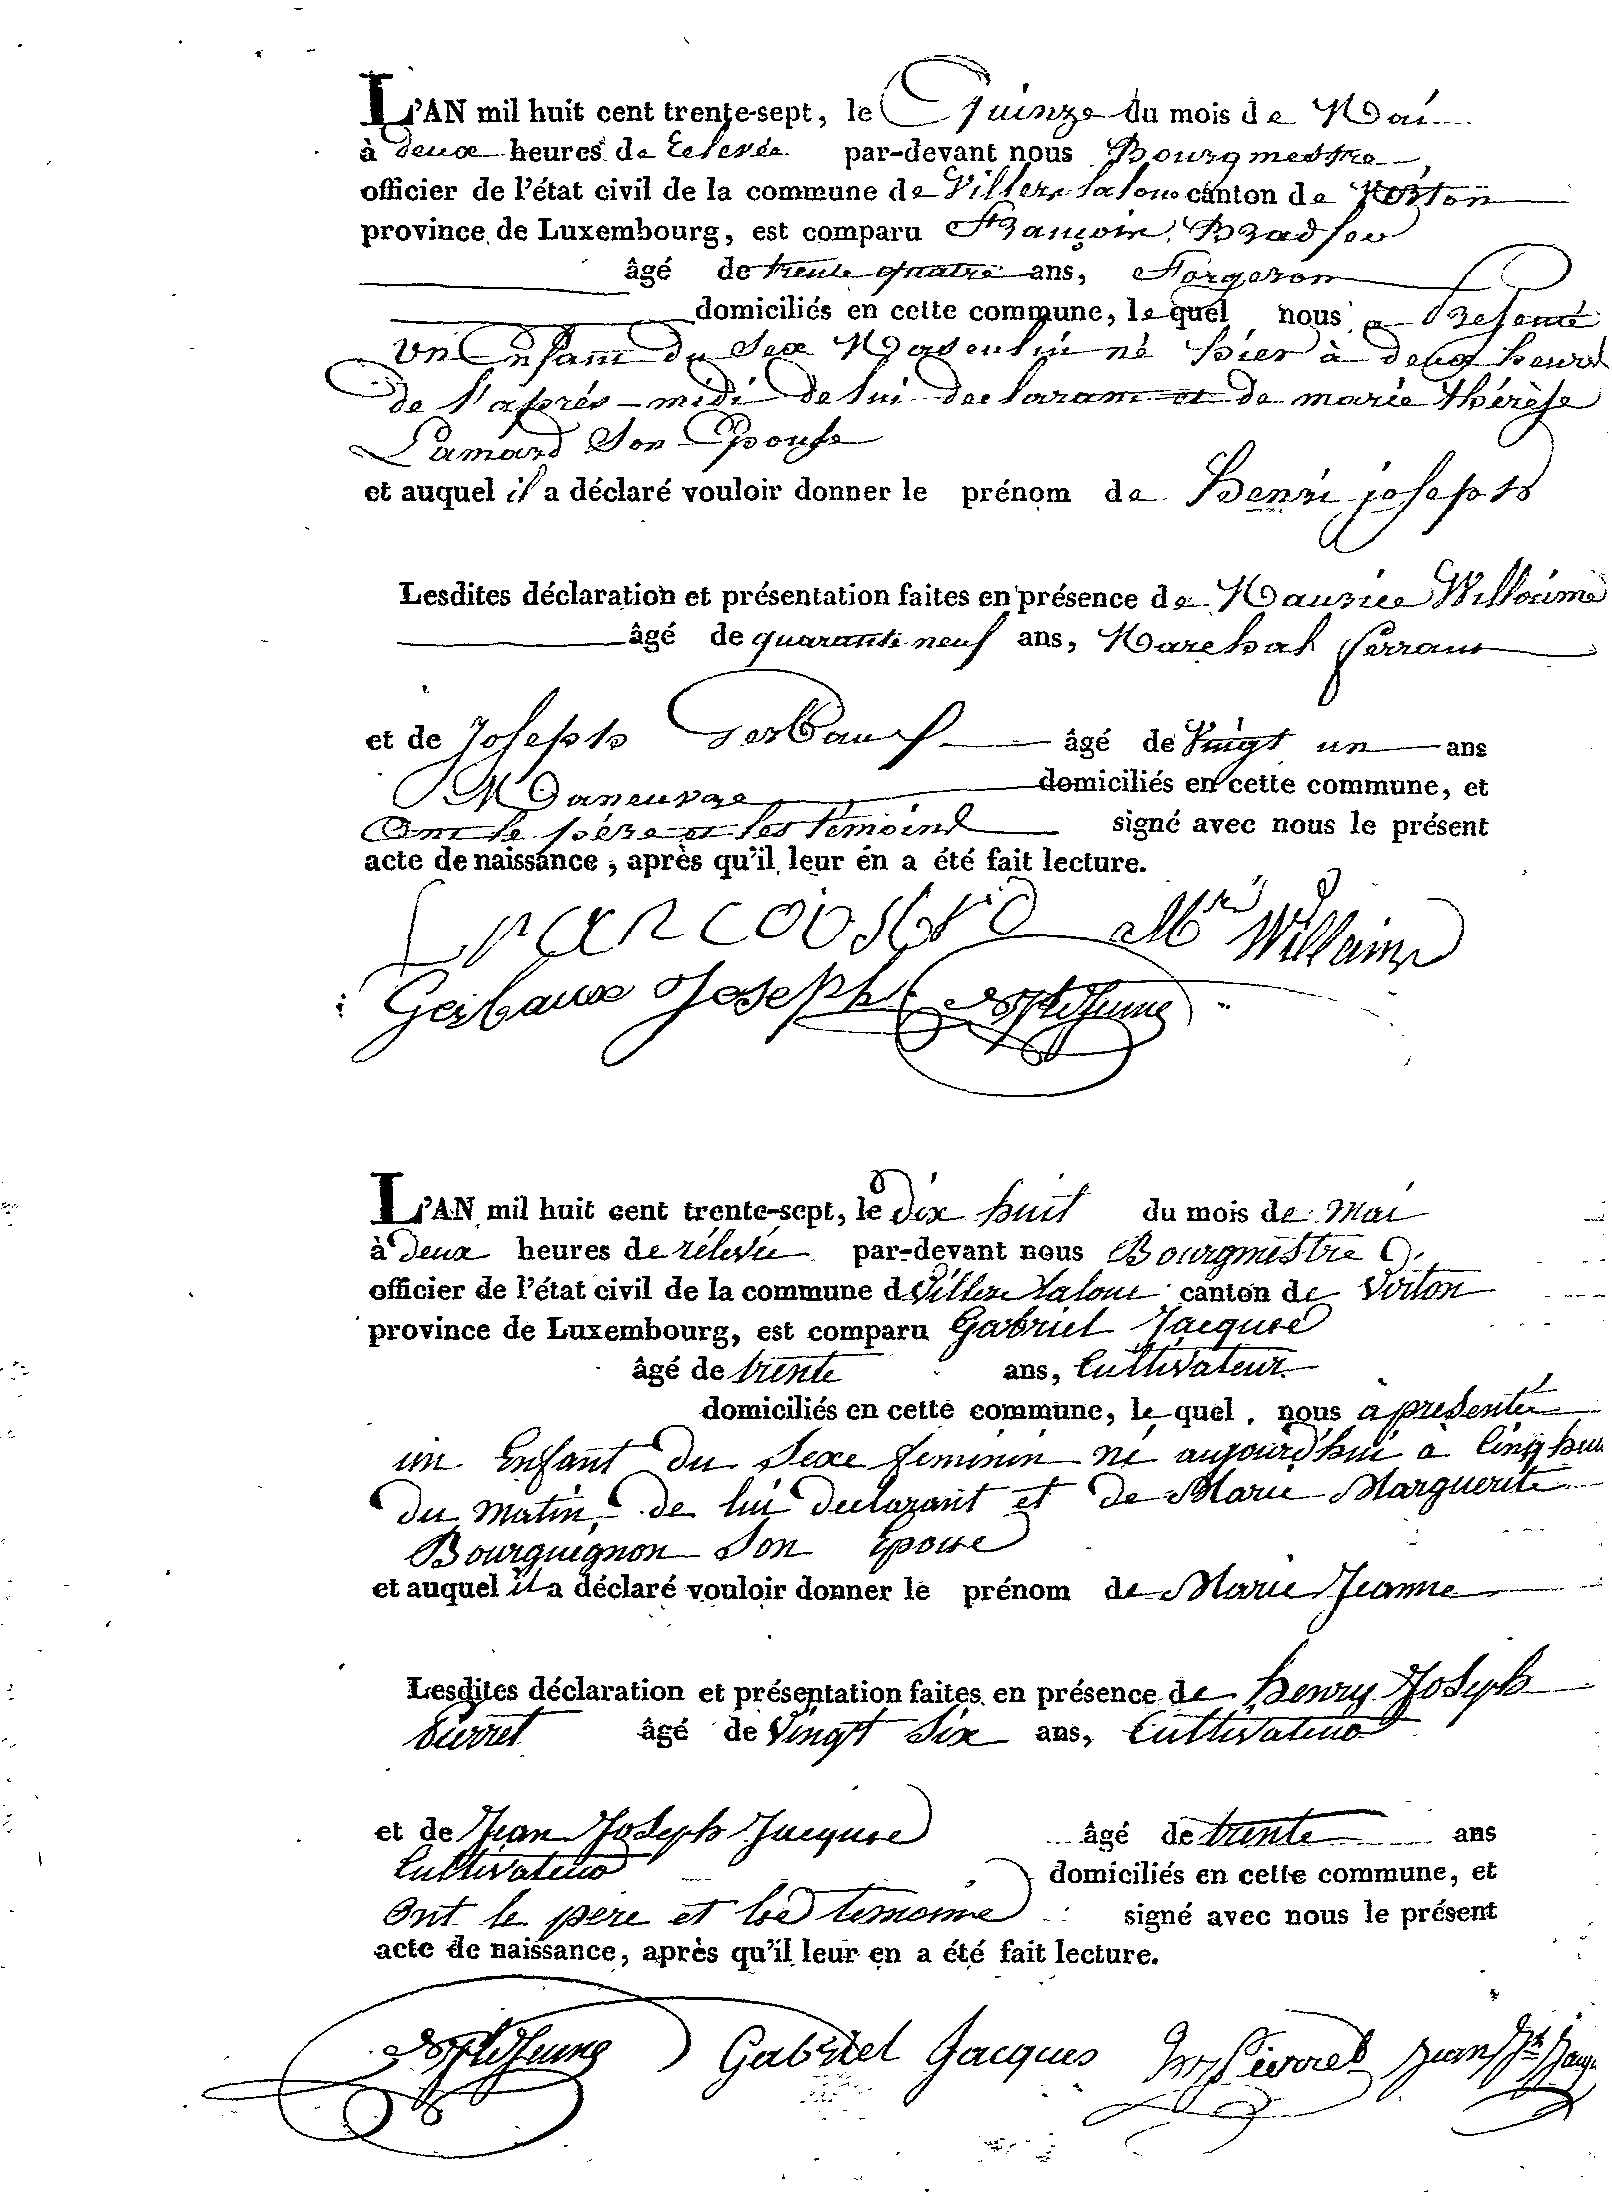 L'AN mil huit cent trente-sept, le Quinze du mois de Mai
à deux heures de relevée par-devant nous Bourgmestre,
officier de l'état civil de la commune de Villers la loue canton de Virton
province de Luxembourg, est comparu François
âgé de trente quatre ans, Forgeron
domiciliés en cette commune, le quel nous a Présenté
un Enfant Du Sex Masculin né hier à deux heures
de l'après-midi de lui declarant et de marie thérèse
Lamard Son Epouse
et auquel il a déclaré vouloir donner le prénom de Henri joseph
Lesdites déclaration et présentation faites en présence de Maurice Willaime
âgé de quarante neuf ans, Marehal ferrant
et de Joseph Gerbaux âgé de Vingt un ans
Maneuvre domiciliés en cette commune, et
Ont le père et les témoins signé avec nous le présent
acte de naissance, après qu'il leur en a été fait lecture.
Mce Willaime
Gerbaux Joseph
L'AN mil huit cent trente-sept, le dix huit du mois de mai
à deux heures de rélevée par-devant nous Bourgmestre
officier de l'état civil de la commune d Villers la loue canton de Virton
province de Luxembourg, est comparu Gabriel Jacques
âgé de trente ans, Cultivateur
domiciliés en cette commune, le quel nous a présenté
un Enfant du Sexe feminin né aujourd'hui à Cinq heu
du matin, de lui declarant et de Marie Marguerite
Bourguignon Son Epouse
et auquel il a déclaré vouloir donner le prénom de Marie Jeanne
Lesdites déclaration et présentation faites en présence de henry Joseph
Pierret âgé de Vingt Six ans, Cultivateur
et de Jean Joseph Jacques âgé de trente ans
Cultivateur domiciliés en cette commune, et
Ont le pere et les temoins signé avec nous le présent
acte de naissance, après qu'il leur en a été fait lecture.
Gabriel Jacques Pierret Jean Jph Jacqu